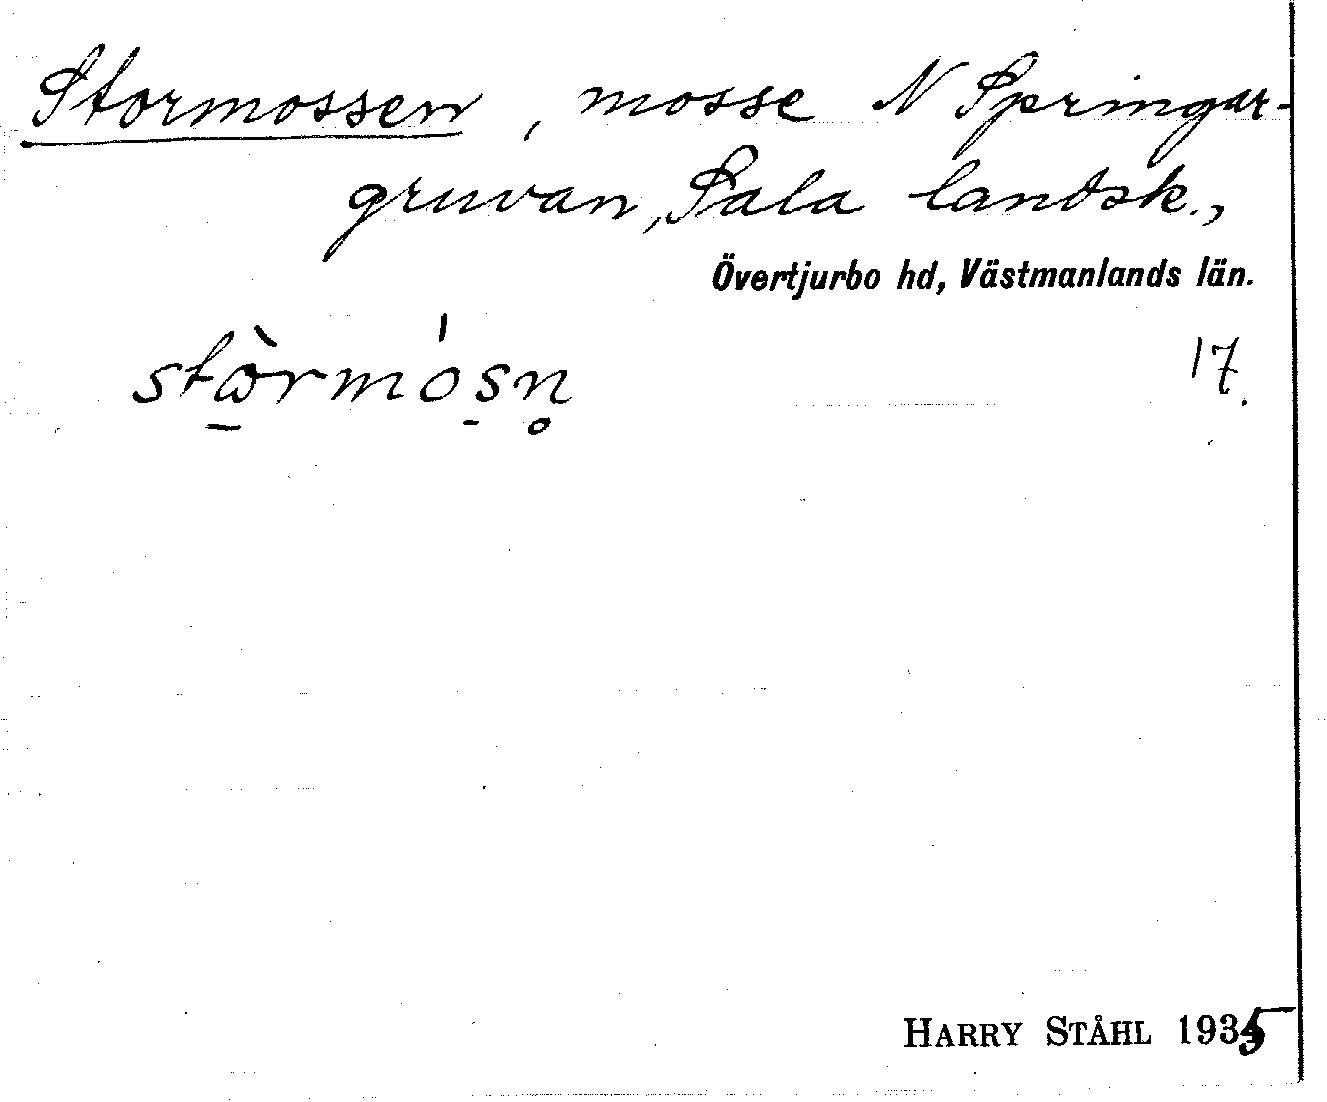 Stormossen, mosse N Springar-
gruvan, Sala landsk.,
Övertjurbo hd, Västmanlands län.
stɷ̀rmósn̥ 17.
HARRY STÅHL 1935